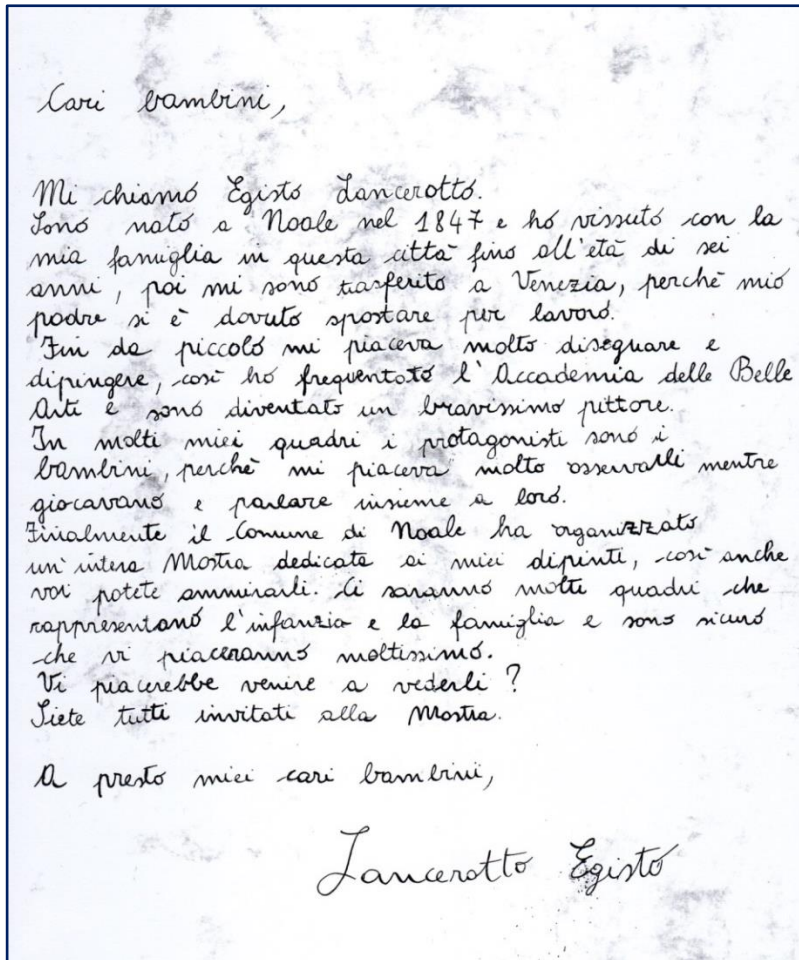 Cari bambini,
Mi chiamo Egisto Lancerotto.
Sono nato a Noale nel 1847 e ho vissuto con la
mia famiglia in questa città fino all'età di sei
anni, poi mi sono trasferito a Venezia, perchè mio
padre si è dovuto spostare per lavoro.
Fin da piccolo mi piaceva molto disegnare e
dipingere, così ho frequentato l'Accademia delle Belle
Arti e sono diventato un bravissimo pittore.
In molti miei quadri i protagonisti sono i
bambini, perchè mi piaceva molto osservarli mentre
giocavano e parlare insieme a loro.
Finalmente il Comune di Noale ha organizzato
un'intera Mostra dedicata ai miei dipinti, così anche
voi potete ammirarli. Ci saranno molti quadri che
rappresentano l'infanzia e la famiglia e sono sicuro
che vi piaceranno moltissimo.
Vi piacerebbe venire a vederli?
Siete tutti invitati alla Mostra.
A presto miei cari bambini,
Lancerotto Egisto